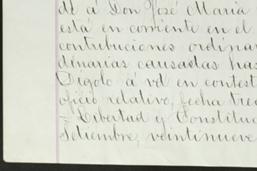 de á Don José Maria
está en corriente en el
contribuciones ordinar
dinarias causadas has
Digolo á vd en contest
oficio relativo, fecha trec
= Libertad y Constituc
Setiembre, veintinueve